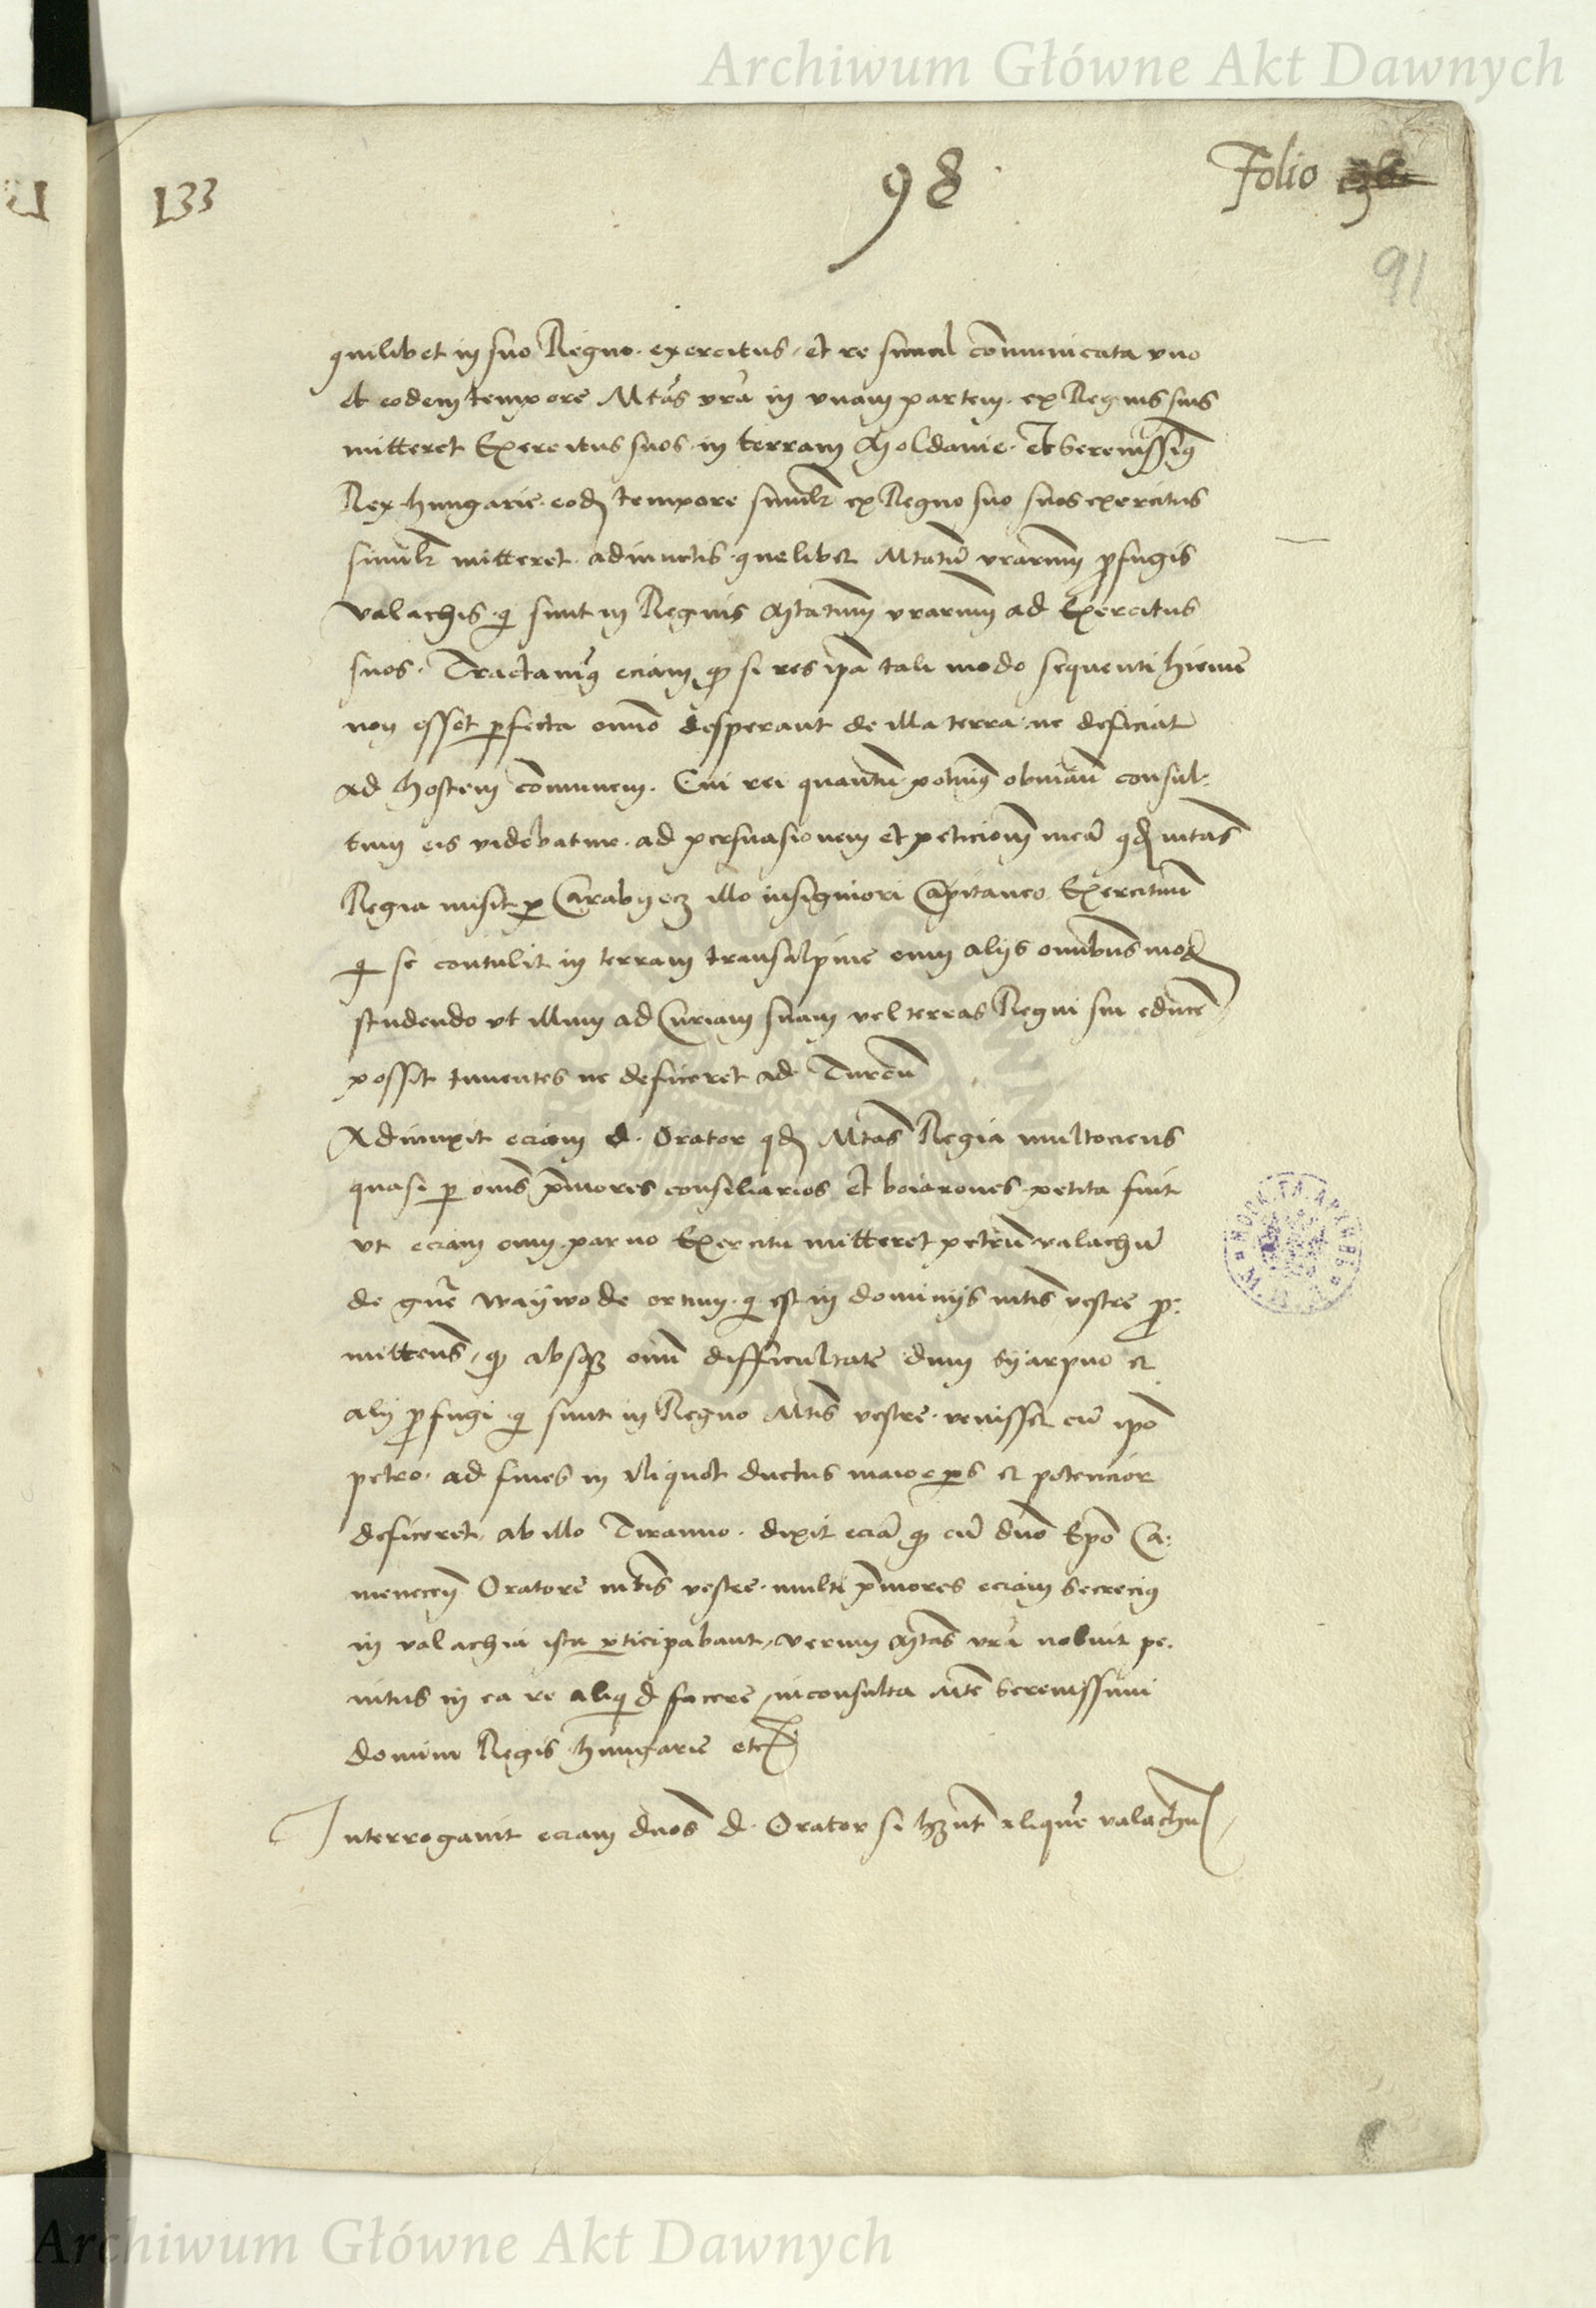 Archiwum Główne Akt Dawnych
133
98
Folio
91
quilibet in suo Regno exercitus, et re simul cōmunicata vno
et eodem tempore Mtās vrā in vnam partem ex Regnis suis
mitteret Exercitus suos in terram Moldauie. Et Serenissimꝰ
Rex hungarie eodē tempore simulr ex Regno suo suos exercitus
similr mitteret adiunctis quelibet Mtatū vrarum ꝓfugis
valachis qi sunt in Regnis Mtatum vrarum ad Exercitus
suos. Tractamꝰ eciam qͦ si res ipā tali modo sequenti hieme
non esset ꝑfecta omīo desperant de illa terra ne deficiat
ad hostem cōmunem. Cui rei quantū potuimꝰ obuiaū consul-
tum eis videbatur ad persuasionem et peticionem meā qd mtas
Regia misit ꝑ Carabyecz illo insigniori Capitaneo Exercitum
qi se contulit in terram transalpine cum alijs omnibus mod
studendo vt illum ad Curiam suam vel terras Regni sui educē
possit timentes ne deficeret ad Turcū
Adiunxit eciam d. Orator qd Mtas Regia multociens
quasi ꝑ oms pͥmores consiliarios et boiarones petita fuit
vt eciam cum paruo Exercitu mitteret petrū valachū
de gnē waywode ortum qi est in dominijs mtis vestre ꝓ-
mittens, qͦ absqꝫ omī difficultate dum Syarpno et
alij ꝓfugi qi sunt in Regno Mtis vestre venisset cū ipō
petro ad fines in aliquot ductus maior ꝑs et potencior
deficeret ab illo Tiranno. dixit eciā qͦ cū dno Epō Ca-
menecen̄ Oratore mtis vestre multi pͥmores eciam secrecius
in valachia ista ꝑticipabant, verum Mtas vrā noluit pe-
nitus in ea re aliqid facere inconsulta Mte Serenissimi
domini Regis hungarie etc
Interrogauit eciam dnos d. Orator si hn̄t aliquē valachū
Archiwum Główne Akt Dawnych